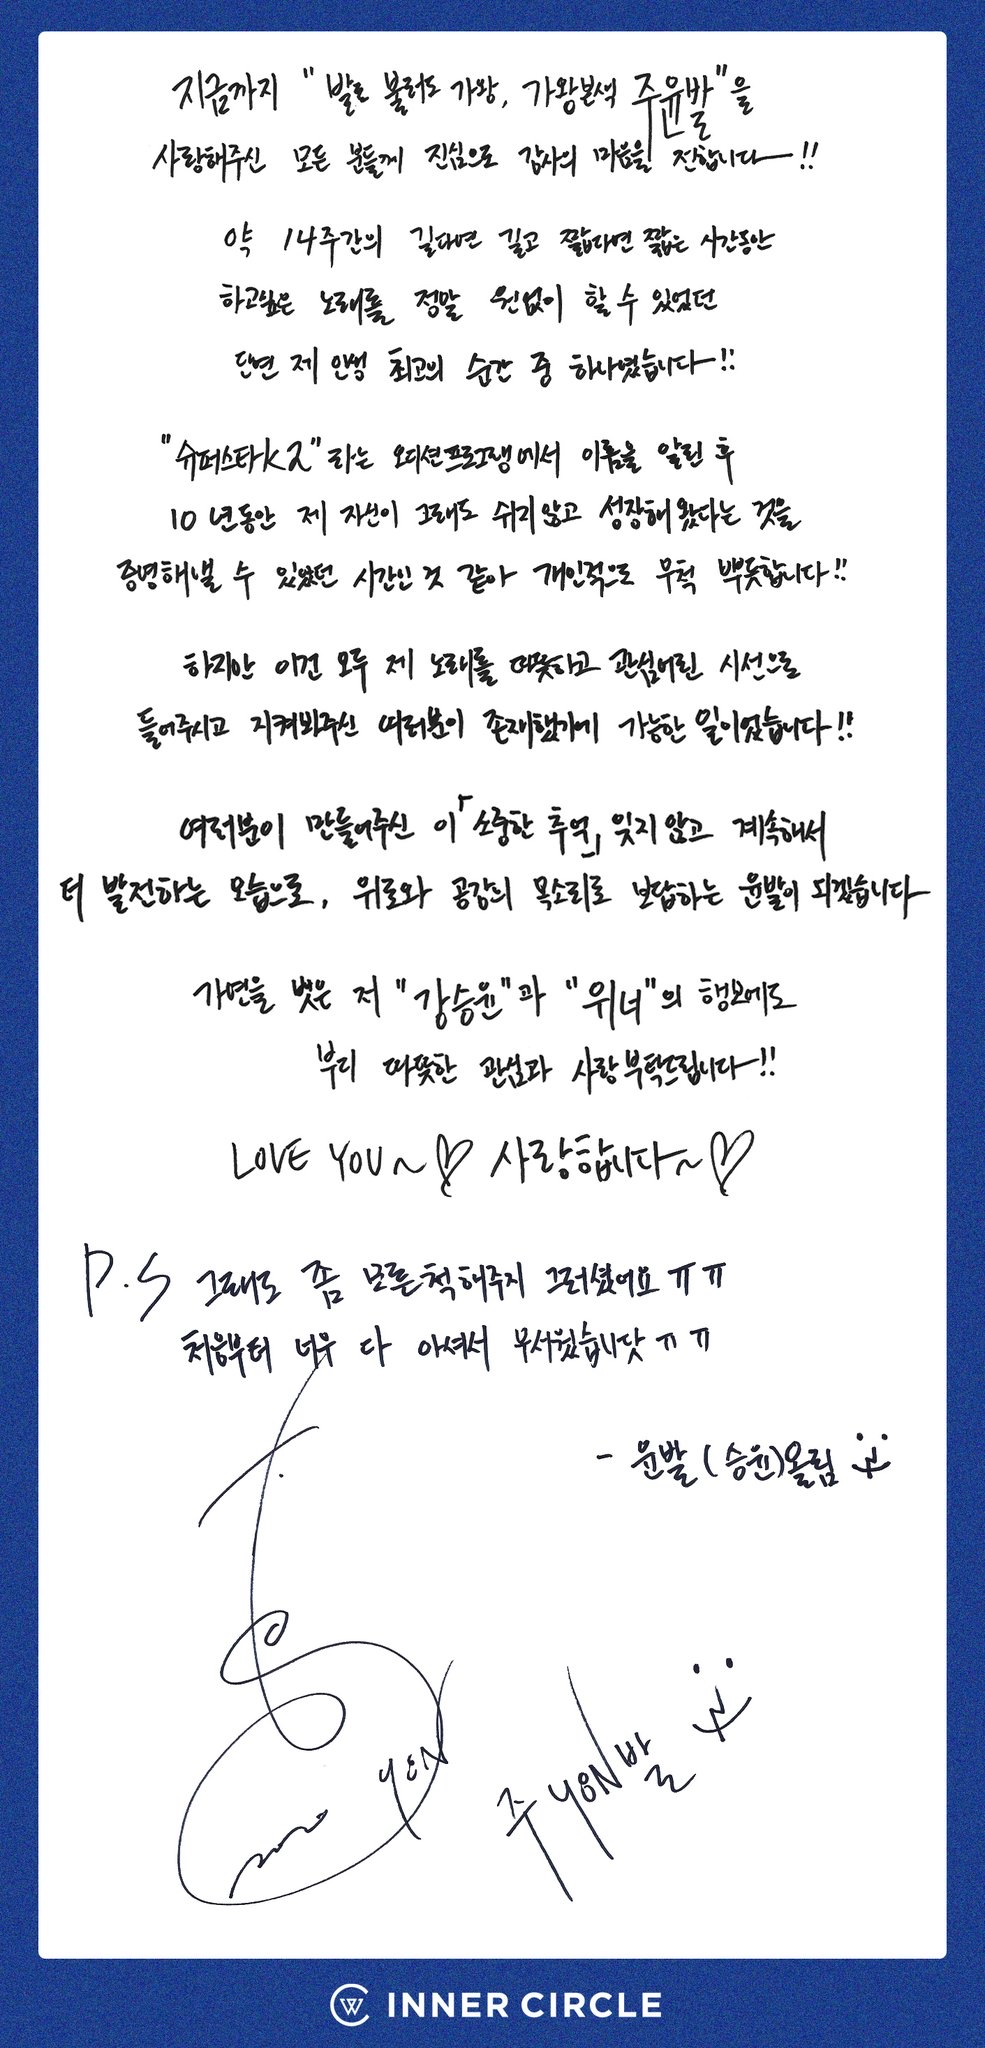 지금까지 "발로 불러도 가왕, 가왕본색 주윤발"을
사랑해주신 모든 분들께 진심으로 감사의 마음을 전합니다-!!
약 14주간의 길다면 길고 짧다면 짧은 시간동안
하고싶은 노래를 정말 원없이 할 수 있었던
단연 제 인생 최고의 순간 중 하나였습니다-!!
"슈퍼스타K2"라는 오디션프로그램에서 이름을 알린 후
10년동안 제 자신이 그래도 쉬지않고 성장해왔다는 것을
증명해낼 수 있었던 시간인 것 같아 개인적으로 무척 뿌듯합니다!!
하지만 이건 모두 제 노래를 따뜻하고 관심어린 시선으로
들어주시고 지켜봐주신 여러분이 존재했기에 가능한 일이었습니다!!
여러분이 만들어주신 이「소중한 추억」잊지않고 계속해서
더 발전하는 모습으로, 위로와 공감의 목소리로 보답하는 윤발이 되겠습니다
가면을 벗은 저 "강승윤"과 "위너"의 행보에도
부디 따뜻한 관심과 사랑부탁드립니다-!!
LOVE YOU~♡ 사랑합니다~♡
P.S 그래도 좀 모른척해주지 그러셨어요 ㅠㅠ
처음부터 너무 다 아셔서 무서웠습니닷ㅠㅠ
- 윤발(승윤)올림
YEN
주YOON발
INNER CIRCLE